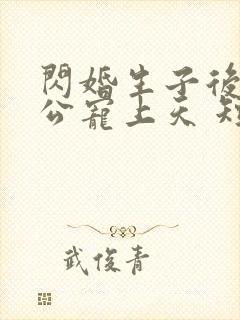 閃婚生子後
公寵上天 短
武俊青